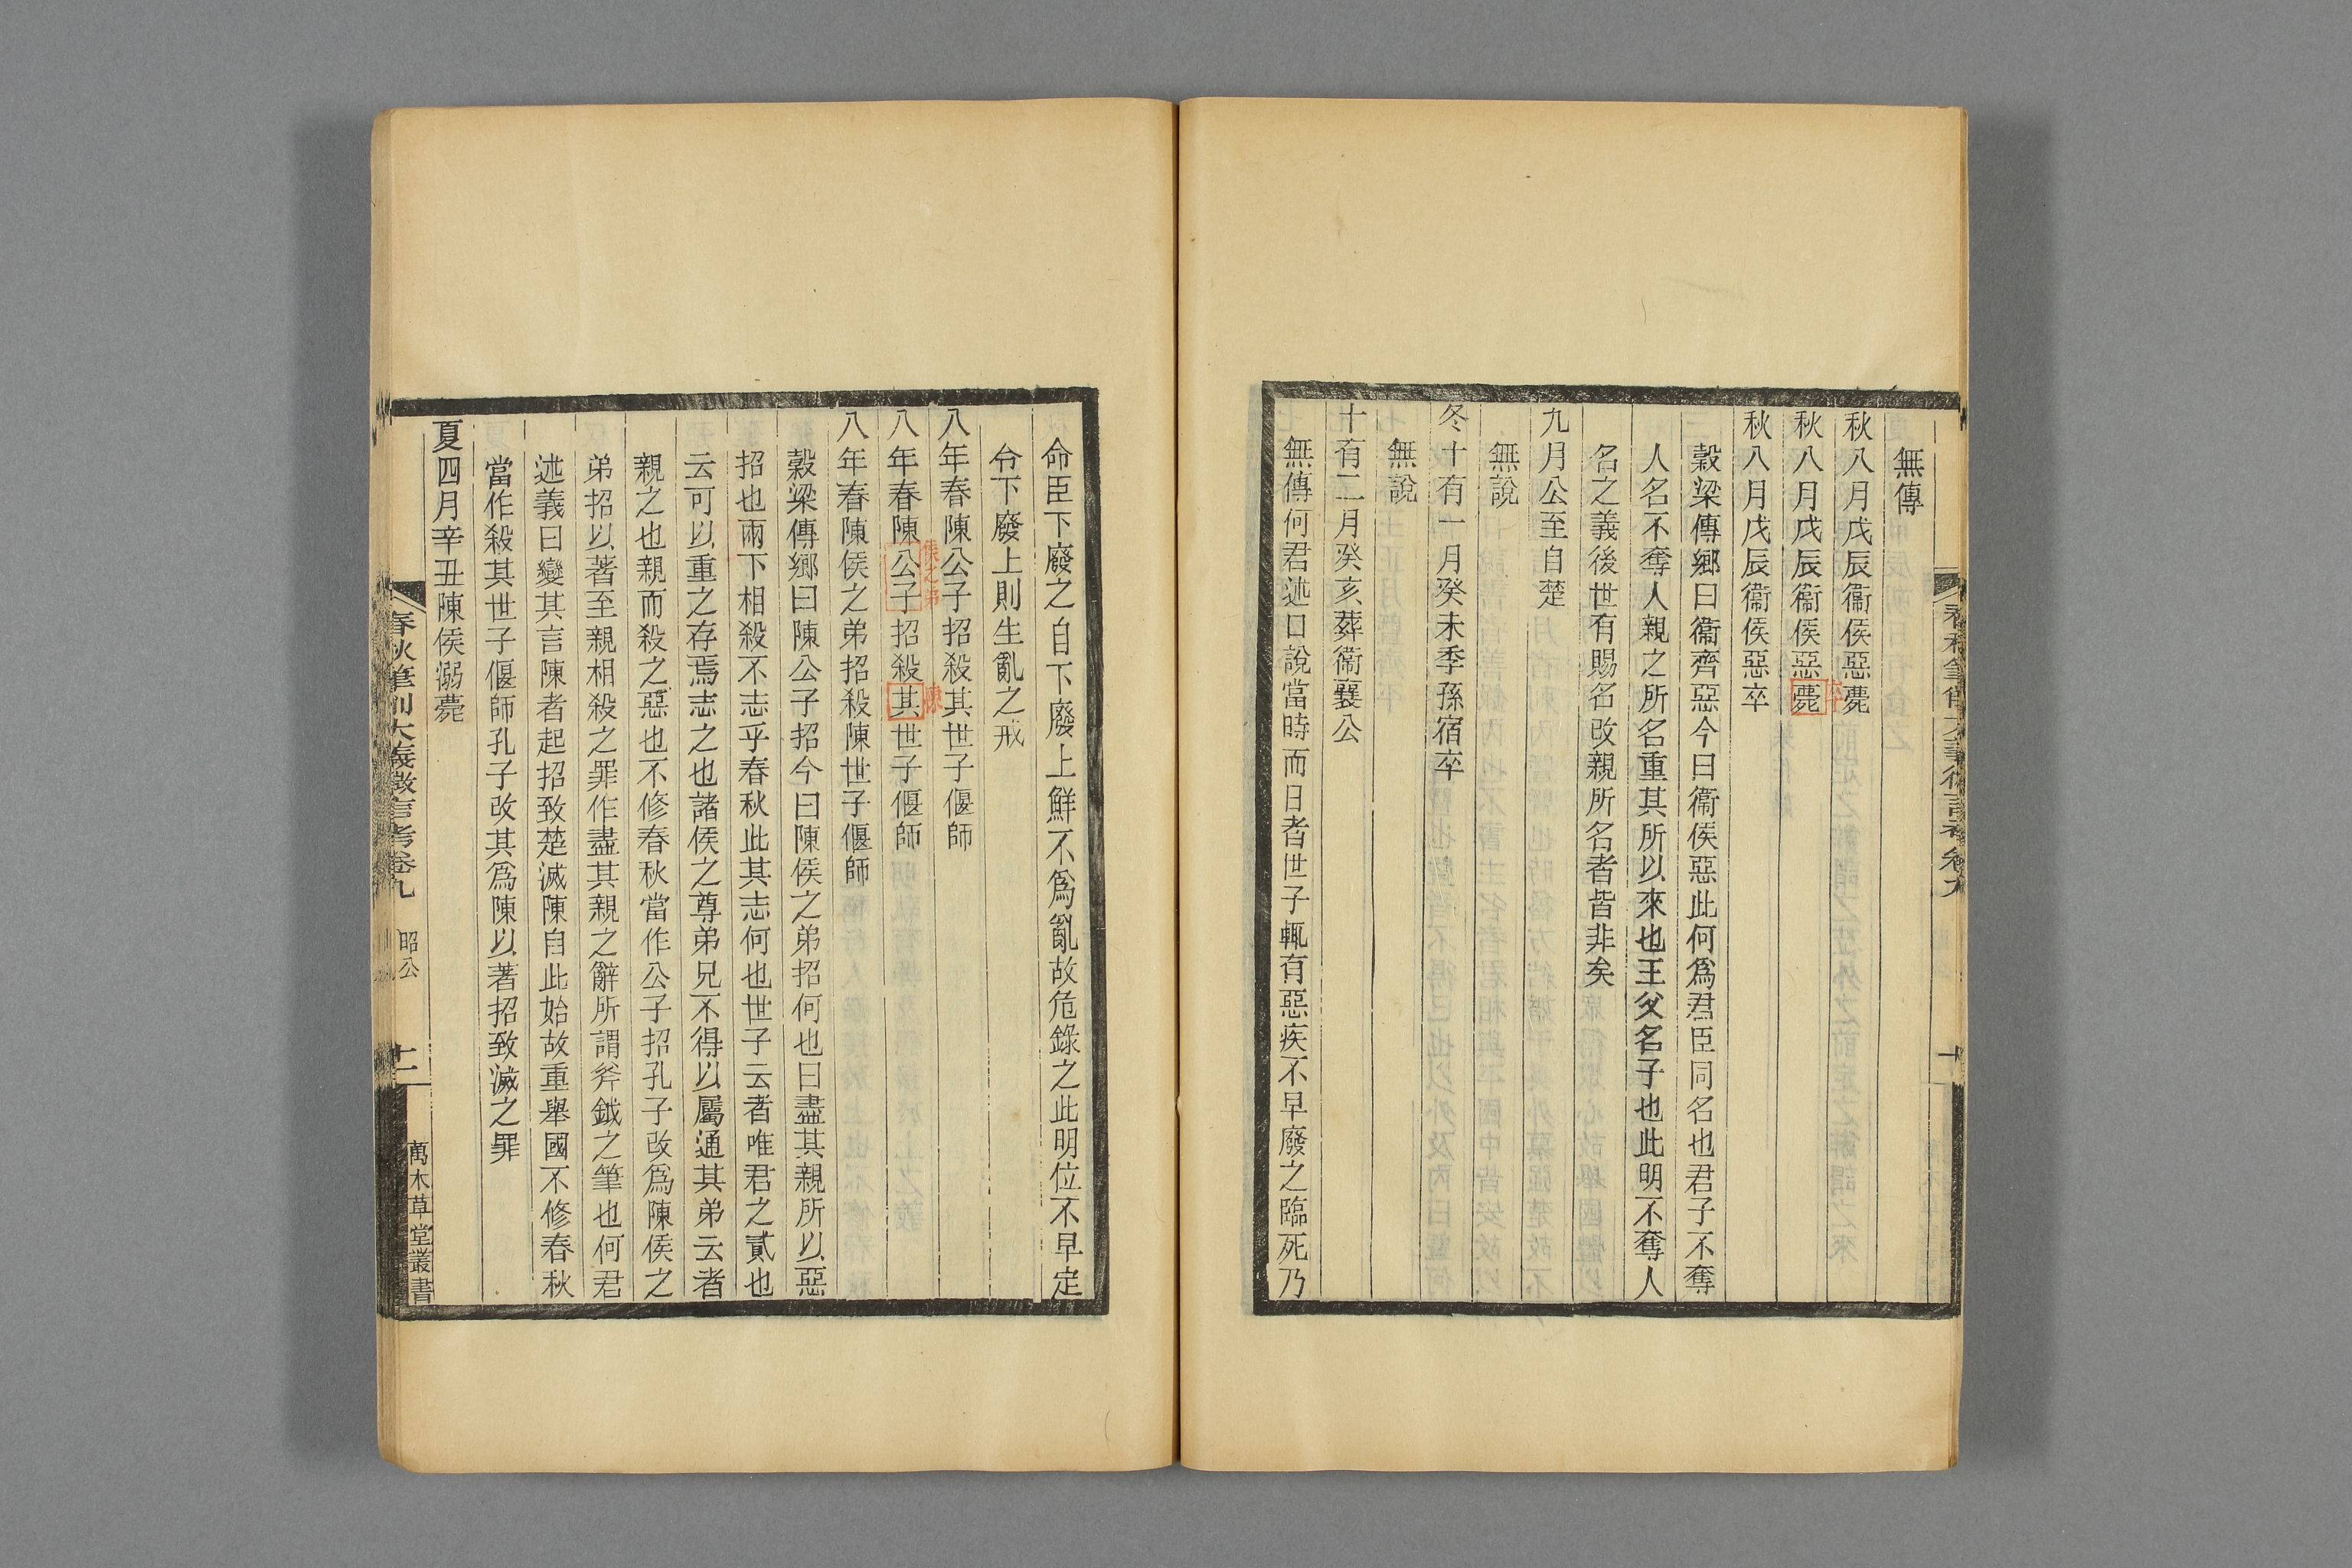 無傳
秋八月戊辰衞侯惡薨
卒
秋八月戊辰衞侯惡薨
秋八月戊辰衞侯惡卒
穀梁傳鄉曰衞齊惡今曰衞侯惡此何爲君臣同名也君子不奪
人名不奪人親之所名重其所以來也王父名子也此明不奪人
名之義後世有賜名改親所名者皆非矣
九月公至自楚
無說
冬十有一月癸未季孫宿卒
無說
十有二月癸亥葬衞襄公
無傳何君述口說當時而日者世子輒有惡疾不早廢之臨死乃
命臣下廢之自下廢上鮮不爲亂故危錄之此明位不早定
令下廢上則生亂之戒
八年春陳公子招殺其世子偃師
侯之弟
陳
八年春陳公子招殺其世子偃師
八年春陳侯之弟招殺陳世子偃師
穀梁傳鄉曰陳公子招今曰陳侯之弟招何也曰盡其親所以惡
招也兩下相殺不志乎春秋此其志何也世子云者唯君之貳也
云可以重之存焉志之也諸侯之尊弟兄不得以屬通其弟云者
親之也親而殺之惡也不修春秋當作公子招孔子改爲陳侯之
弟招以著至親相殺之罪作盡其親之辭所謂斧鉞之筆也何君
述義曰變其言陳者起招致楚滅陳自此始故重舉國不修春秋
當作殺其世子偃師孔子改其爲陳以著招致滅之罪
夏四月辛丑陳侯溺薨
春秋筆削大義微言考卷九
昭公
十一
萬木草堂叢書